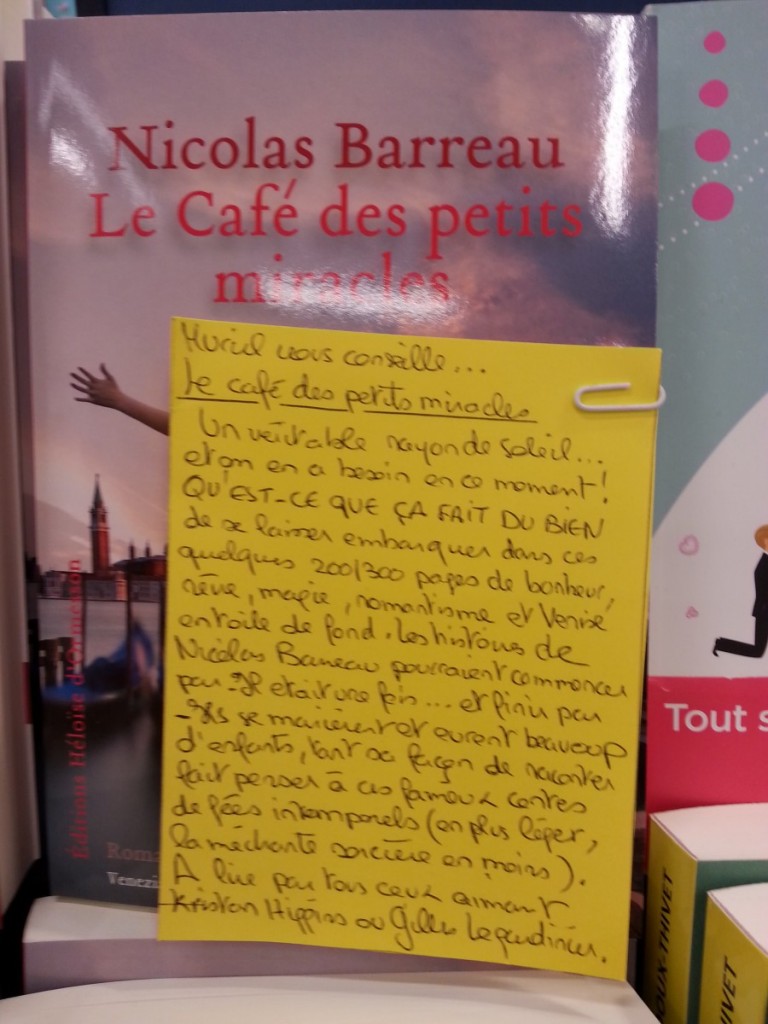 Nicolas Barreau
Le Café des petits
miracles
Muriel vous conseille...
Le café des petits miracles
Un véritable rayon de soleil...
et on en a besoin en ce moment!
QU'EST-CE QUE ÇA FAIT DU BIEN
de se laisser embarquer dans ces
quelques 200/300 pages de bonheur,
rêve, magie, romantisme et Venise
en toile de fond. Les histoires de
Nicolas Barreau pourraient commencer
par - Il était une fois... et finir par
- Ils se marièrent et eurent beaucoup
d'enfants, tant sa façon de raconter
fait penser à ces fameux contes
de fées intemporels (en plus léger,
la méchante sorcière en moins).
A lire par tous ceux aimant
Kristan Higgins ou Gilles Legardinier.
Éditions Héloïse d'Ormesson
Roma
Venezi
Tout s
OUX-THIVET
IVET